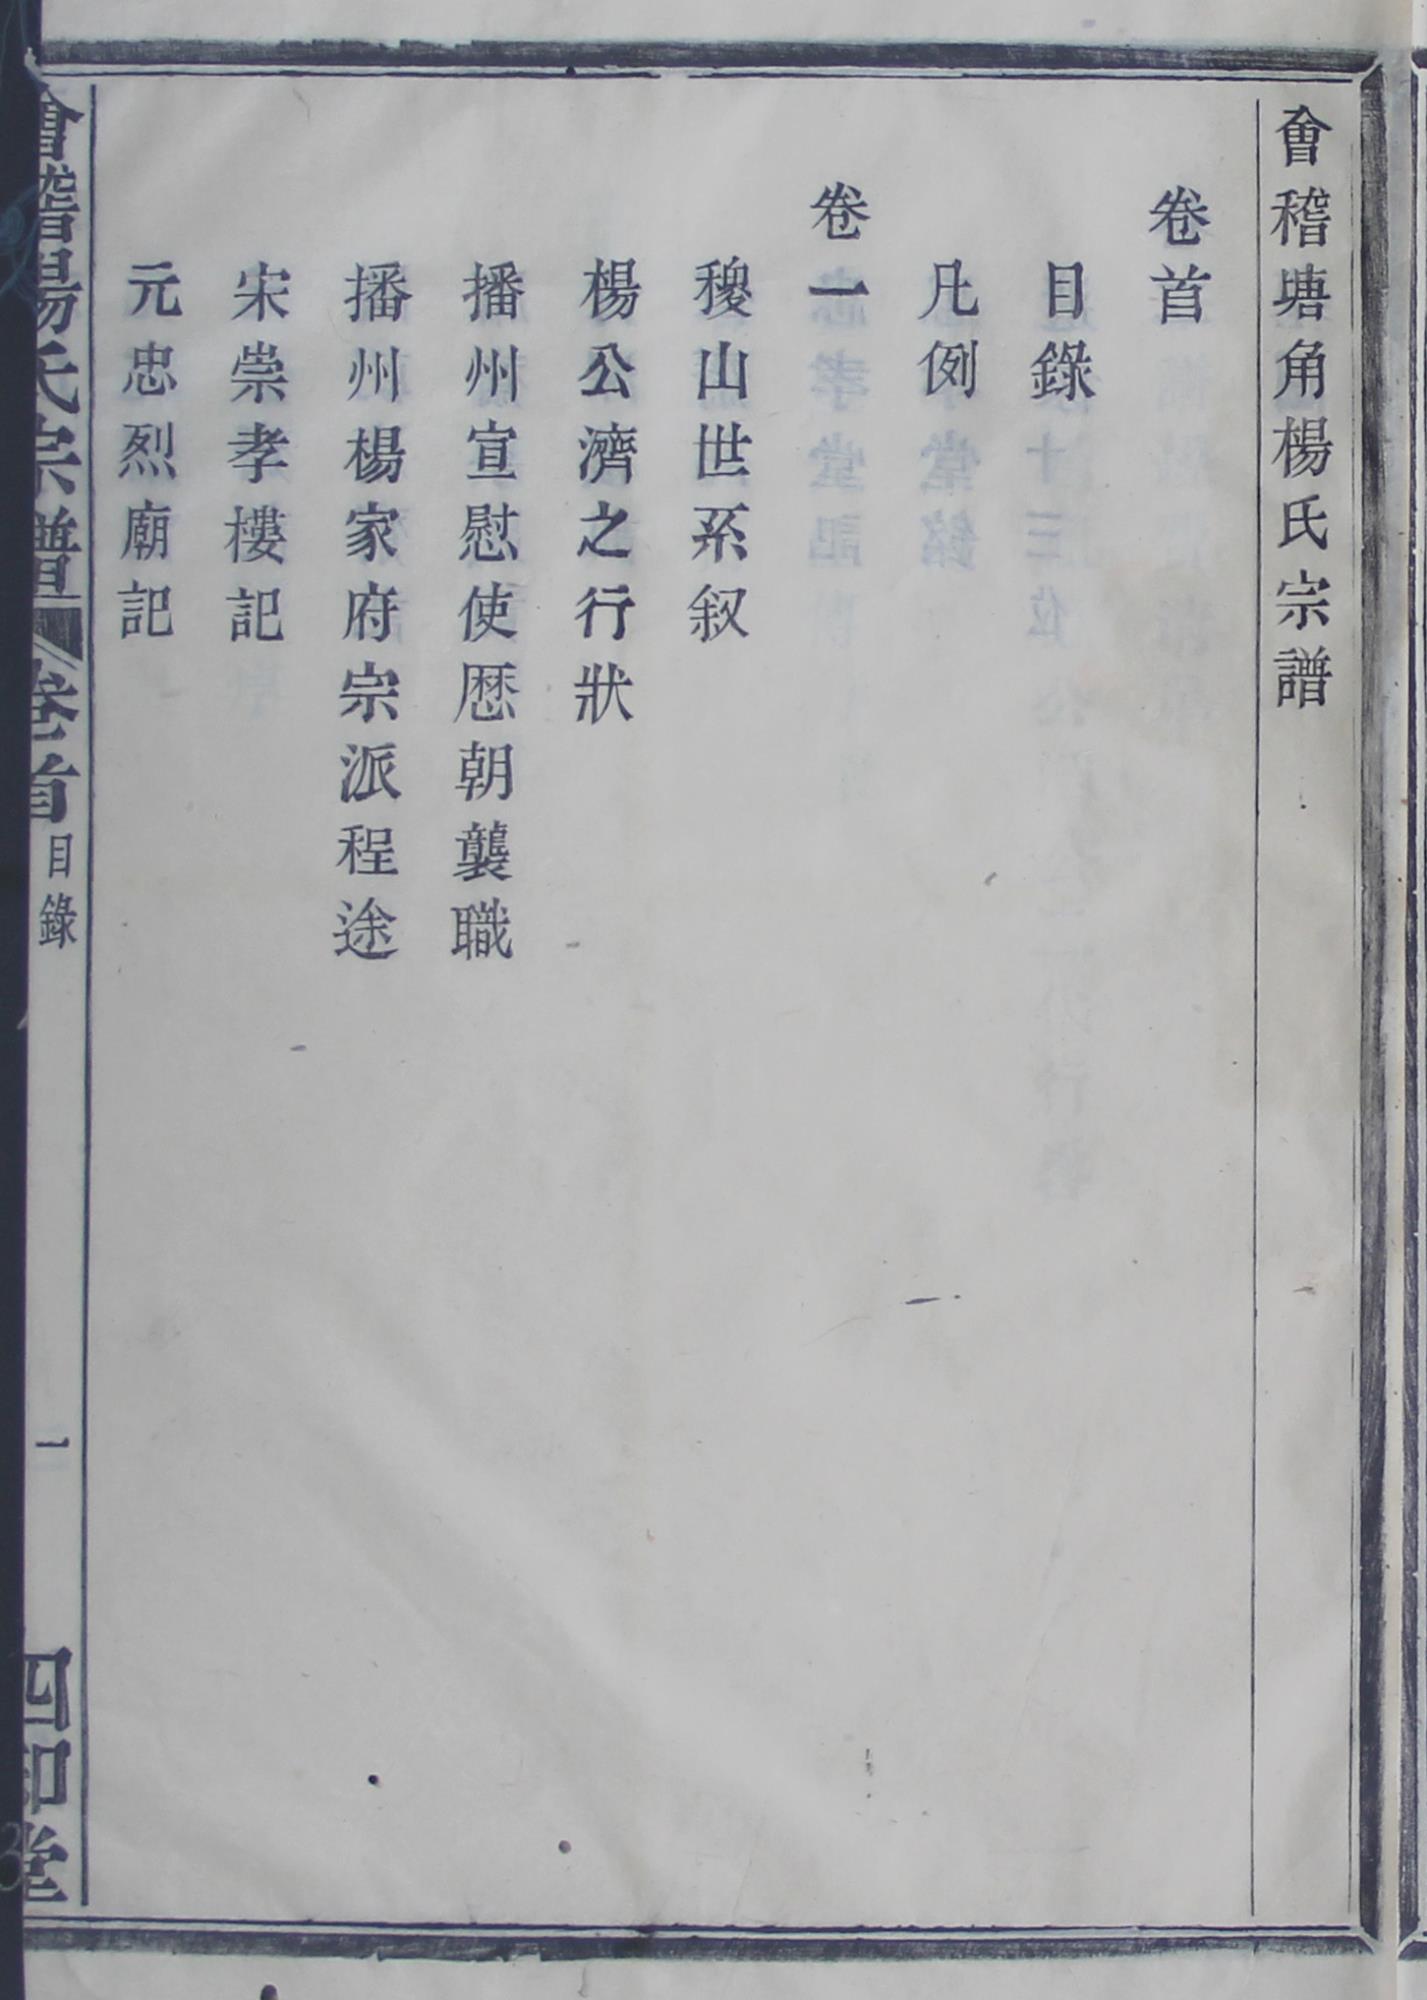 會稽塘角楊氏宗譜
卷首
目錄
凡例
卷一
稷山世系叙
楊公濟之行狀
播州宣慰使歷朝襲職
播州楊家府宗派程途
宋崇孝樓記
元忠烈廟記
會稽楊氏宗譜
卷首
目錄
一
四知堂